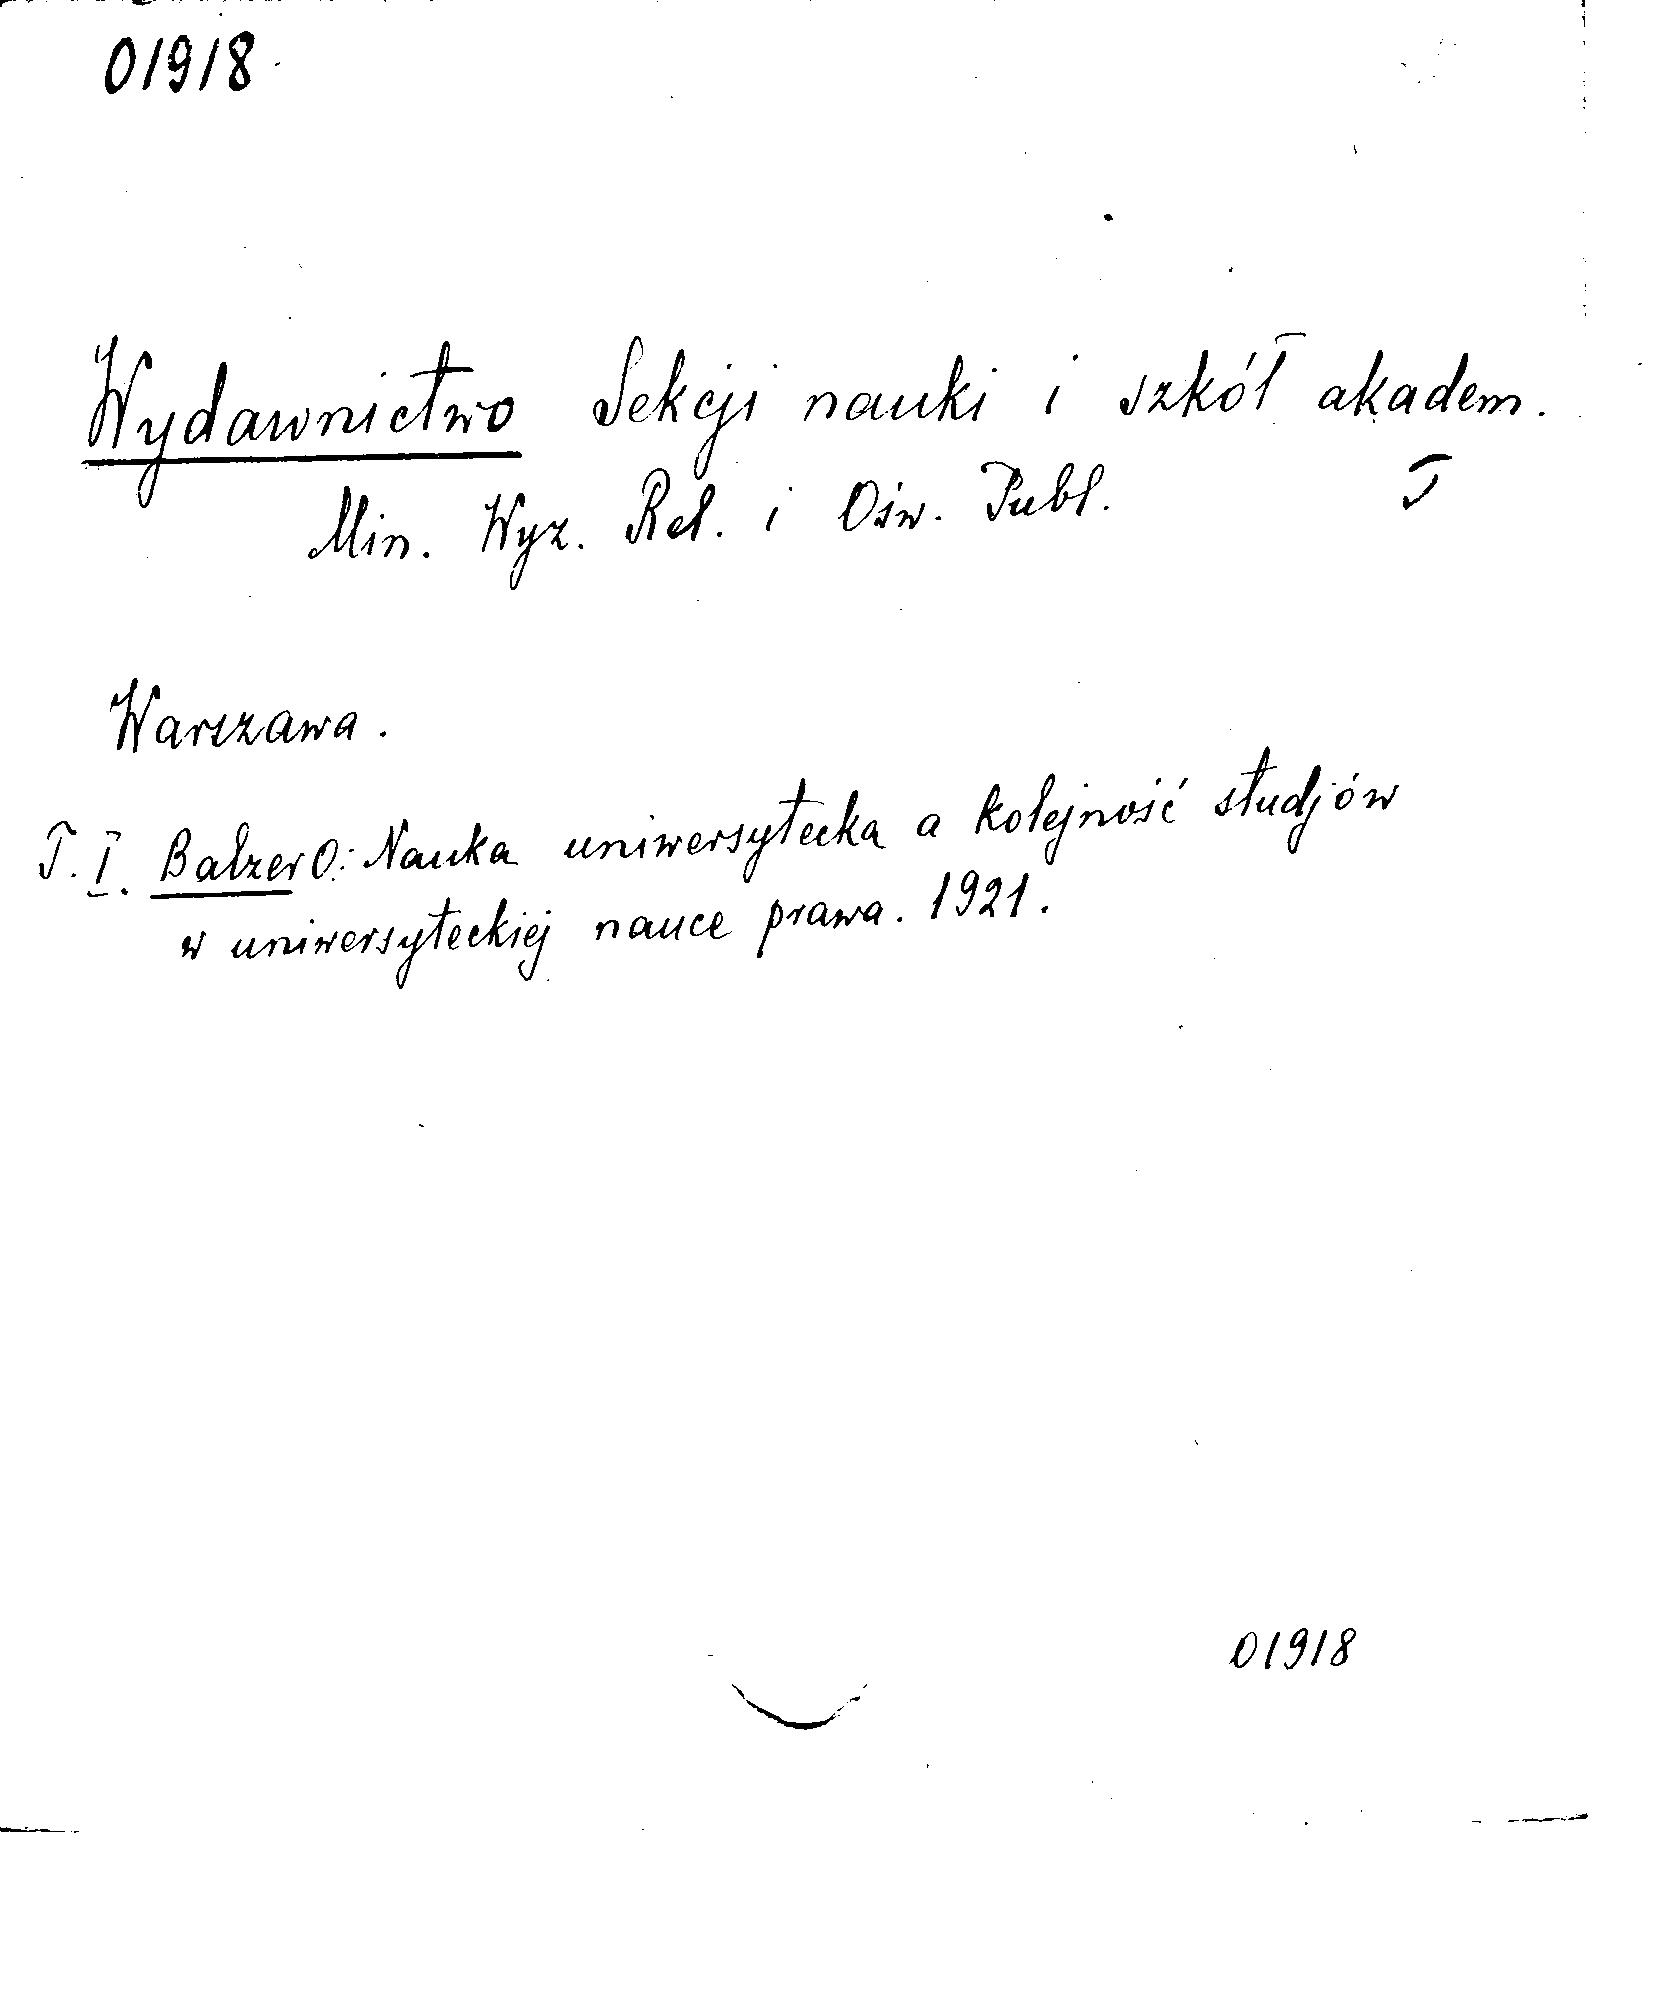 01918
Wydawnictwo Sekcji nauki i szkół akadem.
Min. Wyz. Rel. i Ośw. Publ. T
Warszawa.
T. I. Balzer O.: Nauka uniwersytecka a kolejność studjów
w uniwersyteckiej nauce prawa. 1921.
01918